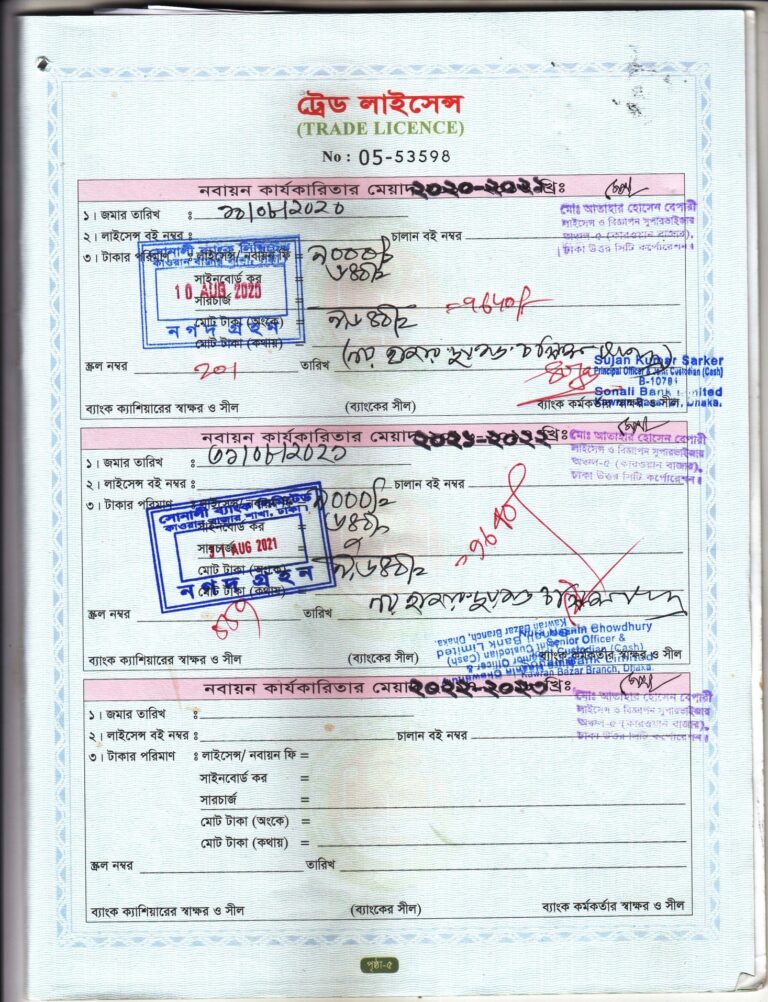 ট্রেড লাইসেন্স
(TRADE LICENCE)
No : 05-53598
নবায়ন কার্যকারিতার মেয়াদ ২০২০-২০২১ খ্রিঃ
মোঃ আতাহার হোসেন বেপারী
লাইসেন্স ও বিজ্ঞাপন সুপারভাইজার
অঞ্চল-৫ (কারওয়ান বাজার),
ঢাকা উত্তর সিটি কর্পোরেশন।
১। জমার তারিখ :
২। লাইসেন্স বই নম্বর : চালান বই নম্বর
৩। টাকার পরিমাণ : লাইসেন্স/ নবায়ন ফি = ৯০০০/=
সাইনবোর্ড কর ৬৪০/=
সারচার্জ
=9640/-
মোট টাকা (অংকে) ৯,৬৪০/=
মোট টাকা (কথায়)
সোনালী ব্যাংক লিমিটেড
10 AUG 2020
নগদ গ্রহন
স্ক্রল নম্বর 201 তারিখ
Sujan Kumar Sarker
Principal Officer & Joint Custodian (Cash)
Sonali Bank Limited
Kawran Bazar Branch, Dhaka.
ব্যাংক ক্যাশিয়ারের স্বাক্ষর ও সীল (ব্যাংকের সীল) ব্যাংক কর্মকর্তার স্বাক্ষর ও সীল
নবায়ন কার্যকারিতার মেয়াদ ২০২১-২০২২ খ্রিঃ
মোঃ আতাহার হোসেন বেপারী
লাইসেন্স ও বিজ্ঞাপন সুপারভাইজার
অঞ্চল-৫ (কারওয়ান বাজার),
ঢাকা উত্তর সিটি কর্পোরেশন।
১। জমার তারিখ : ৩১/০৮/২০২১
২। লাইসেন্স বই নম্বর : চালান বই নম্বর
৩। টাকার পরিমাণ : লাইসেন্স/ নবায়ন ফি ৯০০০/=
সাইনবোর্ড কর ৬৪০/=
সারচার্জ
=9640/-
মোট টাকা (অংকে) ৯,৬৪০/=
মোট টাকা (কথায়)
সোনালী ব্যাংক লিমিটেড
কাওরান বাজার শাখা, ঢাকা।
31 AUG 2021
নগদ গ্রহন
স্ক্রল নম্বর তারিখ
Chowdhury
Senior Officer &
Joint Custodian (Cash)
Sonali Bank Limited
Kawran Bazar Branch, Dhaka.
ব্যাংক ক্যাশিয়ারের স্বাক্ষর ও সীল (ব্যাংকের সীল) ব্যাংক কর্মকর্তার স্বাক্ষর ও সীল
নবায়ন কার্যকারিতার মেয়াদ ২০২২-২০২৩ খ্রিঃ
মোঃ আতাহার হোসেন বেপারী
লাইসেন্স ও বিজ্ঞাপন সুপারভাইজার
অঞ্চল-৫ (কারওয়ান বাজার),
ঢাকা উত্তর সিটি কর্পোরেশন।
১। জমার তারিখ :
২। লাইসেন্স বই নম্বর : চালান বই নম্বর
৩। টাকার পরিমাণ : লাইসেন্স/ নবায়ন ফি =
সাইনবোর্ড কর =
সারচার্জ =
মোট টাকা (অংকে) =
মোট টাকা (কথায়) =
স্ক্রল নম্বর তারিখ
ব্যাংক ক্যাশিয়ারের স্বাক্ষর ও সীল (ব্যাংকের সীল) ব্যাংক কর্মকর্তার স্বাক্ষর ও সীল
পৃষ্ঠা-৫